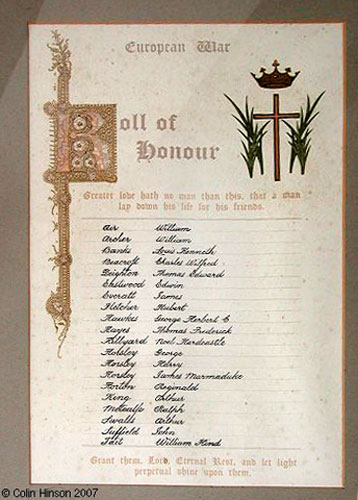 European War
Roll of
Honour
Greater love hath no man than this, that a man
lay down his life for his friends.
Air William
Archer William
Banks Louis Kenneth
Beacroft Charles Wilfred
Deighton Thomas Edward
Eastwood Edwin
Everatt James
Fletcher Hubert
Hawkes George Herbert C
Hayes Thomas Frederick
Hillyard Noel Hardcastle
Horsley George
Horsley Harry
Horsley James Marmaduke
Horton Reginald
King Arthur
Metcalfe Ralph
Swalls Arthur
Suffield John
William Hind
Grant them, Lord, Eternal Rest, and let light
perpetual shine upon them.
© Colin Hinson 2007